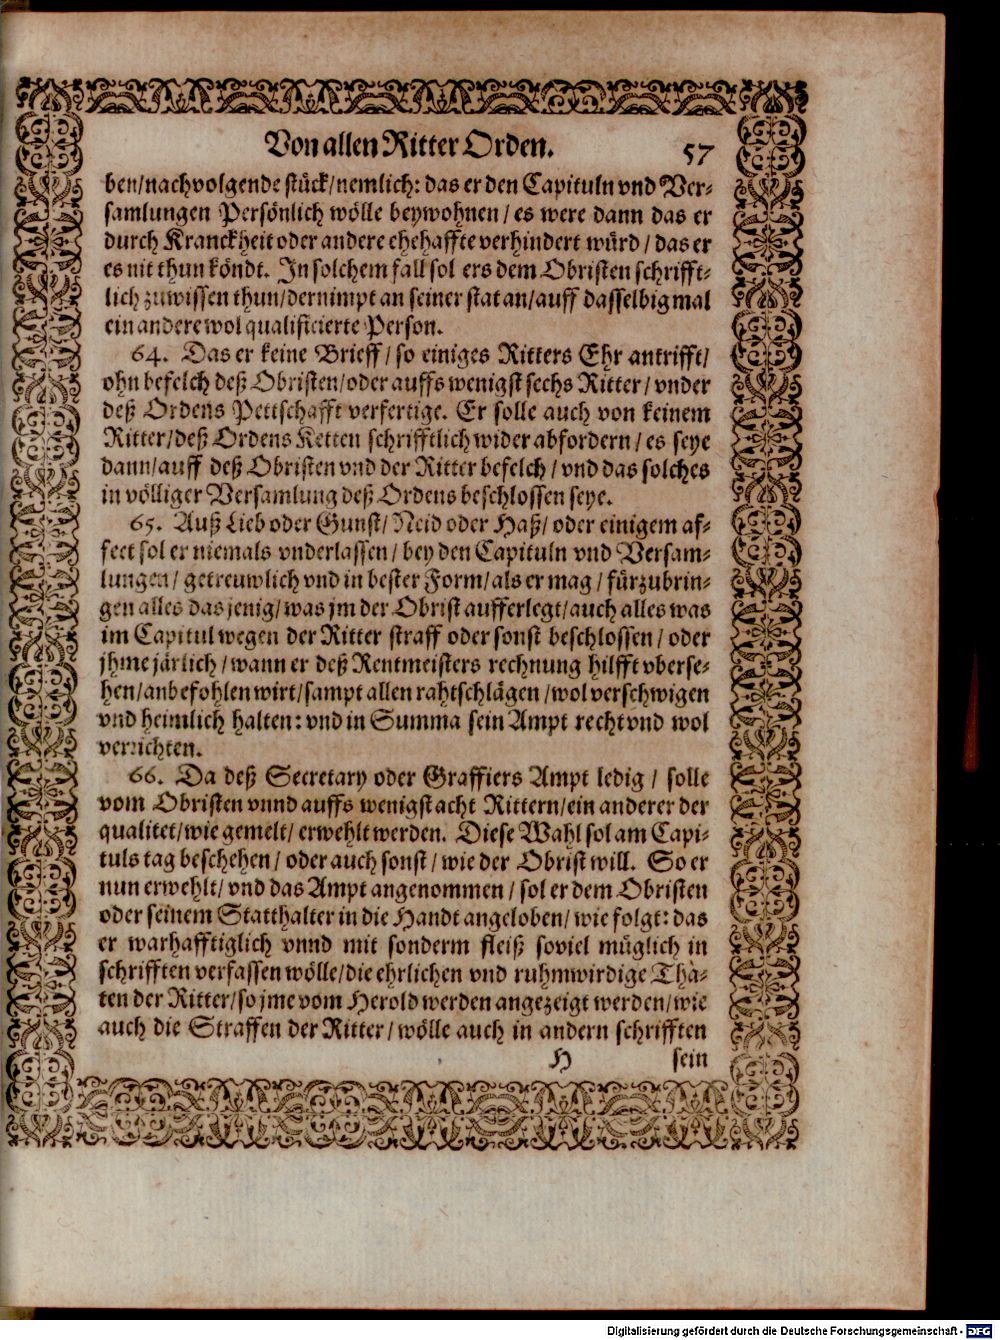 Von allen Ritter Orden. 57
ben/nachvolgende stück/nemlich: das er den Capituln vnd Ver-
samlungen Persönlich wölle beywohnen / es were dann das er
durch Kranckheit oder andere ehehaffte verhindert würd / das er
es nit thun köndt. In solchem fall sol ers dem Obristen schrifft-
lich zuwissen thun/der nimpt an seiner stat an/auff dasselbig mal
ein andere wol qualificierte Person.
64. Das er keine Brieff / so einiges Ritters Ehr antrifft/
ohn befelch deß Obristen/oder auffs wenigst sechs Ritter / vnder
deß Ordens Pettschafft verfertige. Er solle auch von keinem
Ritter/deß Ordens Ketten schrifftlich wider abfordern / es seye
dann/auff deß Obristen vnd der Ritter befelch / vnd das solches
in völliger Versamlung deß Ordens beschlossen seye.
65. Auß Lieb oder Gunst/ Neid oder Haß/ oder einigem af-
fect sol er niemals vnderlassen / bey den Capituln vnd Versam-
lungen / getreuwlich vnd in bester Form/als er mag / fürzubrin-
gen alles das jenig/was jm der Obrist aufferlegt/auch alles was
im Capitul wegen der Ritter straff oder sonst beschlossen / oder
jhme järlich / wann er deß Rentmeisters rechnung hilfft vberse-
hen/anbefohlen wirt/sampt allen rahtschlägen /wol verschwigen
vnd heimlich halten: vnd in Summa sein Ampt recht vnd wol
verrichten.
66. Da deß Secretary oder Graffiers Ampt ledig / solle
vom Obristen vnnd auffs wenigst acht Rittern/ein anderer der
qualitet/wie gemelt/ erwehlt werden. Diese Wahl sol am Capi-
tuls tag beschehen / oder auch sonst / wie der Obrist will. So er
nun erwehlt/ vnd das Ampt angenommen / sol er dem Obristen
oder seinem Statthalter in die Handt angeloben/ wie folgt: das
er warhafftiglich vnnd mit sonderm fleiß soviel müglich in
schrifften verfassen wölle/die ehrlichen vnd ruhmwirdige Thà-
ten der Ritter/so jme vom Herold werden angezeigt werden/wie
auch die Straffen der Ritter / wölle auch in andern schrifften
H sein
Digitalisierung gefördert durch die Deutsche Forschungsgemeinschaft - DFG